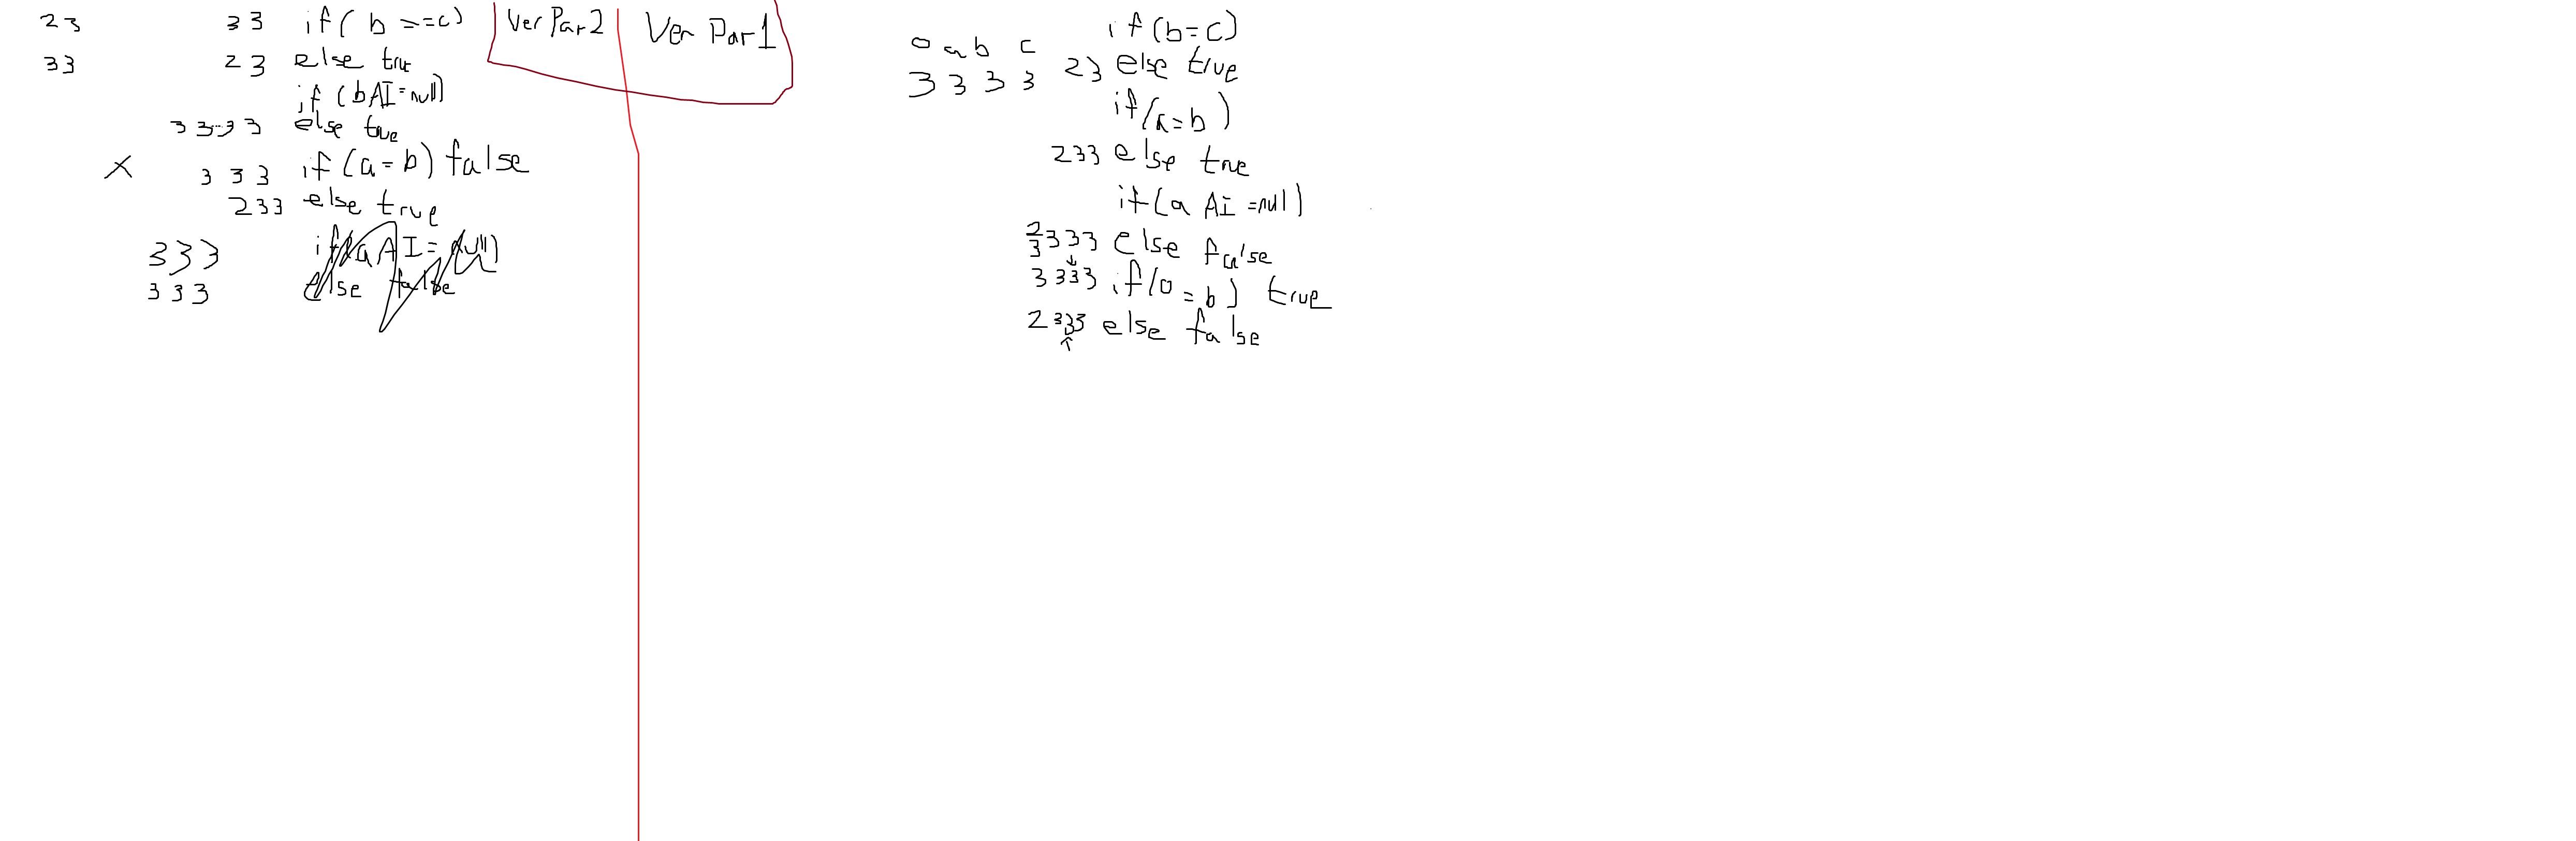 23 33 if( b >==c)
33 23 else true
if (bAI=null)
33-33 else true
X 333 if (a=b) false
233 else true
333 if(aAI=null)
333 else false
Ver Par2
Ver Par1
if(b=c)
o a b c
3 3 3 3 23 else true
if(a=b)
233 else true
if(a AI=null)
2
3 333 else false
3333 if(o=b) true
2333 else false